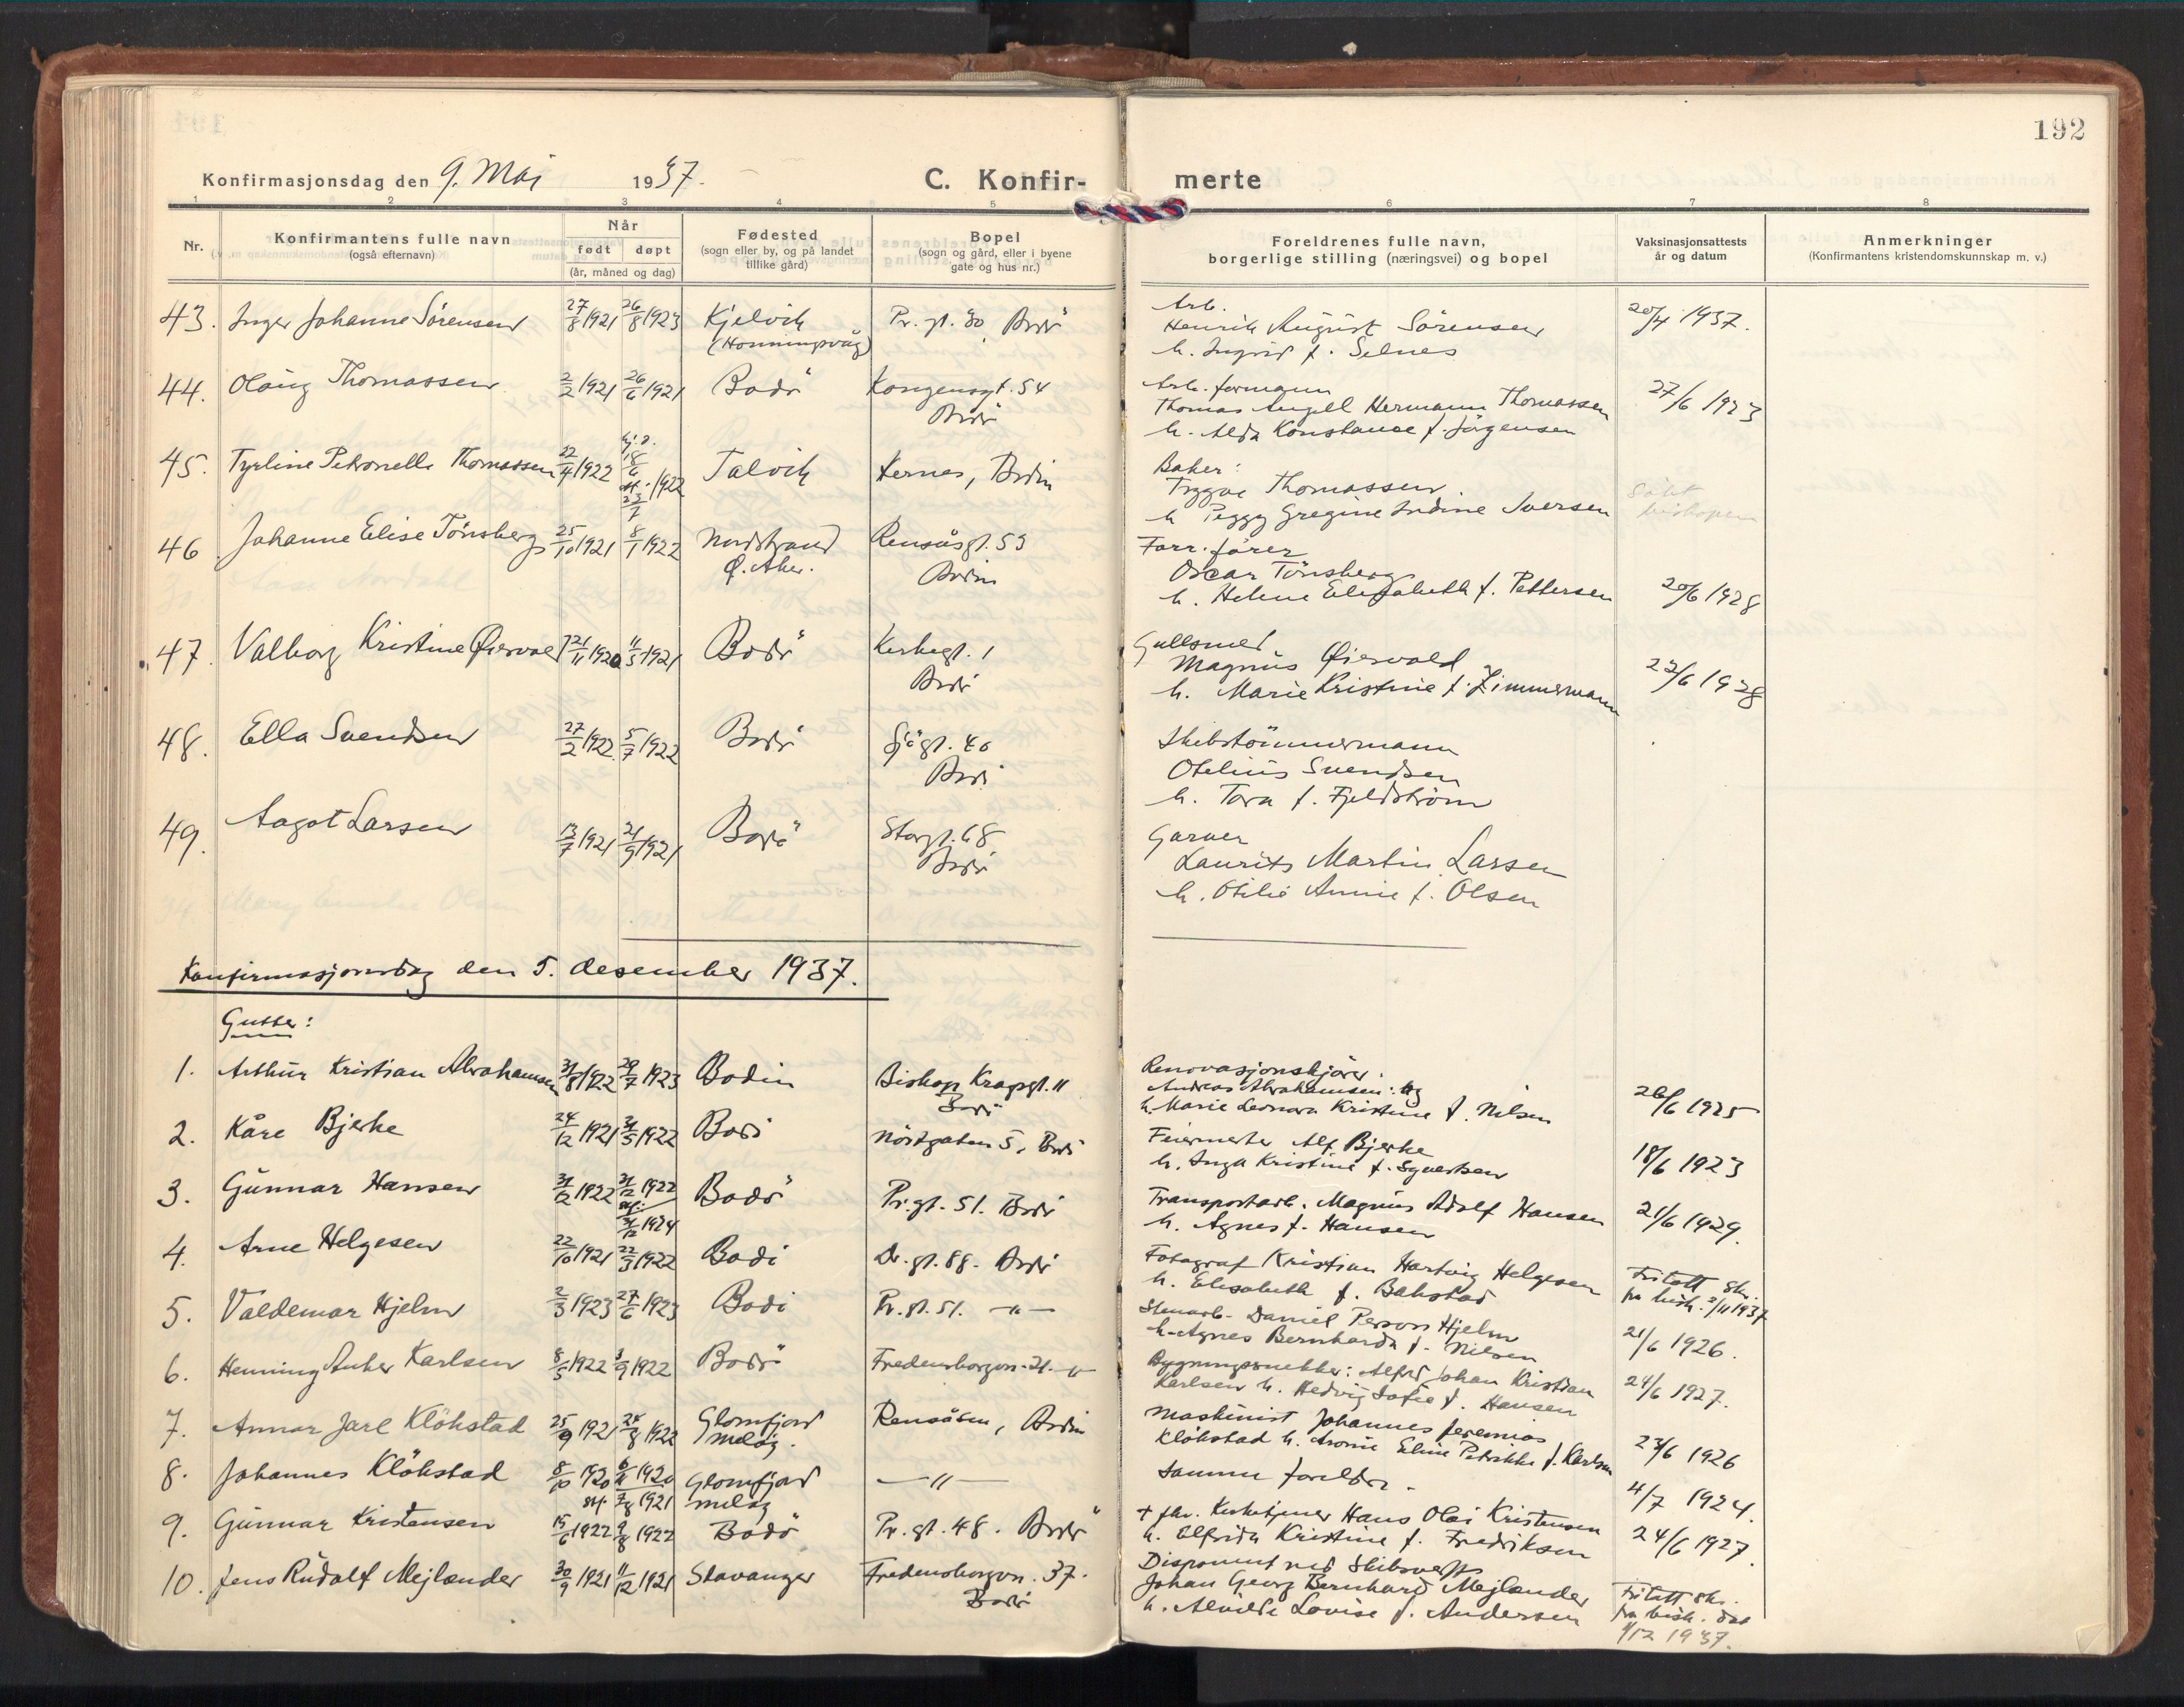 192
Konfirmasjonsdag den 9. Mai 1937.
C. Konfir- merte
1 2 3 4 5 6 7 8
Nr.
Konfirmantens fulle navn
(også efternavn)
Når
født døpt
(år, måned og dag)
Fødested
(sogn eller by, og på landet
tillike gård)
Bopel
(sogn og gård, eller i byene
gate og hus nr.)
Foreldrenes fulle navn,
borgerlige stilling (næringsvei) og bopel
Vaksinasjonsattests
år og datum
Anmerkninger
(Konfirmantens kristendomskunnskap m. v.)
43. Inger Johanne Sörensen 27/8 1921 26/8 1923 Kjelvik (Honningsvåg) Pr. gt. 30, Bodö
Arb.
Henrik August Sörensen
h. Ingrid f. Selnes
20/4 1937.
44. Olaug Thomassen 2/2 1921 26/6 1921 Bodö Kongensgt. 54 Bodö
Arb. formann
Thomas Angell Hermann Thomassen
h. Alda Konstanse f. Jörgensen
27/6 1923
45. Tyrline Petronelle Thomassen 22/4 1922 hj. d. 18/6 st. 23/7 1922 Talvik Hernes, Bodin
Baker:
Trygve Thomassen
h. Peggy Gregine Indine Iversen
Søkt biskopen
46 Johanne Elise Tönsberg 25/10 1921 8/1 1922 Nordstrand Ø. Aker. Rensåsgt. 53 Bodin
Forr. förer
Oscar Tönsberg
h. Helene Elisabeth f. Pettersen
20/6 1928
47. Valborg Kristine Øiervold 21/11 1920 11/5 1921 Bodö Kirkegt. 1 Bodö
Gullsmed
Magnus Øiervold
h. Marie Kristine f. Zimmermann
22/6 1928
48. Ella Svendsen 27/2 1922 5/7 1922 Bodö Sjögt. 40 Bodö
Skibstömmermann
Otelius Svendsen
h. Tora f. Fjeldström
49. Aagot Larsen 13/7 1921 21/9 1921 Bodö Storgt. 68 Bodö
Garver
Laurits Martin Larsen
h. Otilie Annie f. Olsen
Konfirmasjonsdag den 5. desember 1937.
Gutter:
1. Arthur Kristian Abrahamsen 31/8 1922 29/7 1923 Bodin Biskop Krogsgt. 11 Bodö
Renovasjonskjörer
Andreas Abrahamsen: og
h. Marie Leonora Kristine f. Nilsen
26/6 1925
2. Kåre Bjerke 24/12 1921 31/5 1922 Bodö Nöstgaten 5, Bodö
Feiermester Alf Bjerke
h. Inga Kristine f. Syvertsen
18/6 1923
3. Gunnar Hansen 31/12 1922 31/12 1922 31/12 1924 Bodö Pr. gt. 51. Bodö
Transportarb. Magnus Adolf Hansen
h. Agnes f. Hansen
21/6 1929.
4. Arne Helgesen 22/10 1921 22/3 1922 Bodö Dr. gt. 88. Bodö
Fotograf Kristian Hartvig Helgesen
h. Elisabeth f. Bakstad
Fritatt skr.
fra bisk. 2/11 1937
5. Valdemar Hjelm 2/3 1923 27/6 1923 Bodö Pr. gt. 51. —"—
Stenarb. Daniel Persson Hjelm
h. Agnes Bernharda f. Nilsen
21/6 1926.
6. Henning Anker Karlsen 8/5 1922 3/9 1922 Bodö Fredensborgvn. 21. "
Bygningssnekker: Alfred Johan Kristian
Karlsen h. Hedvig Sofie f. Hansen
24/6 1927.
7. Annar Jarl Klökstad 25/9 1921 24/8 1922 Glomfjord Melöy. Rensåsen, Bodin
Maskinist Johannes Jeremias
Klökstad h. Aronie Eline Petrikke f. Karlsen
23/6 1926
8. Johannes Klökstad 8/10 1920 6/11 1920 7/8 1921 Glomfjord Melöy —"—
Samme foreldre.
4/7 1924.
9. Gunnar Kristensen 15/6 1922 9/8 1922 Bodö Pr. gt. 48. Bodö
+ fhv. Kirketjener Hans Olai Kristensen
h. Alfrida Kristine f. Fredriksen
24/6 1927.
10. Jens Rudolf Mejlænder 30/9 1921 11/12 1921 Stavanger Fredensborgvn. 37. Bodö
Disponent ved Skibsverft
Johan Georg Bernhard Mejlænder
h. Alvilde Lovise f. Andersen
Fritatt skr.
fra bisk. dat
1/12 1937.